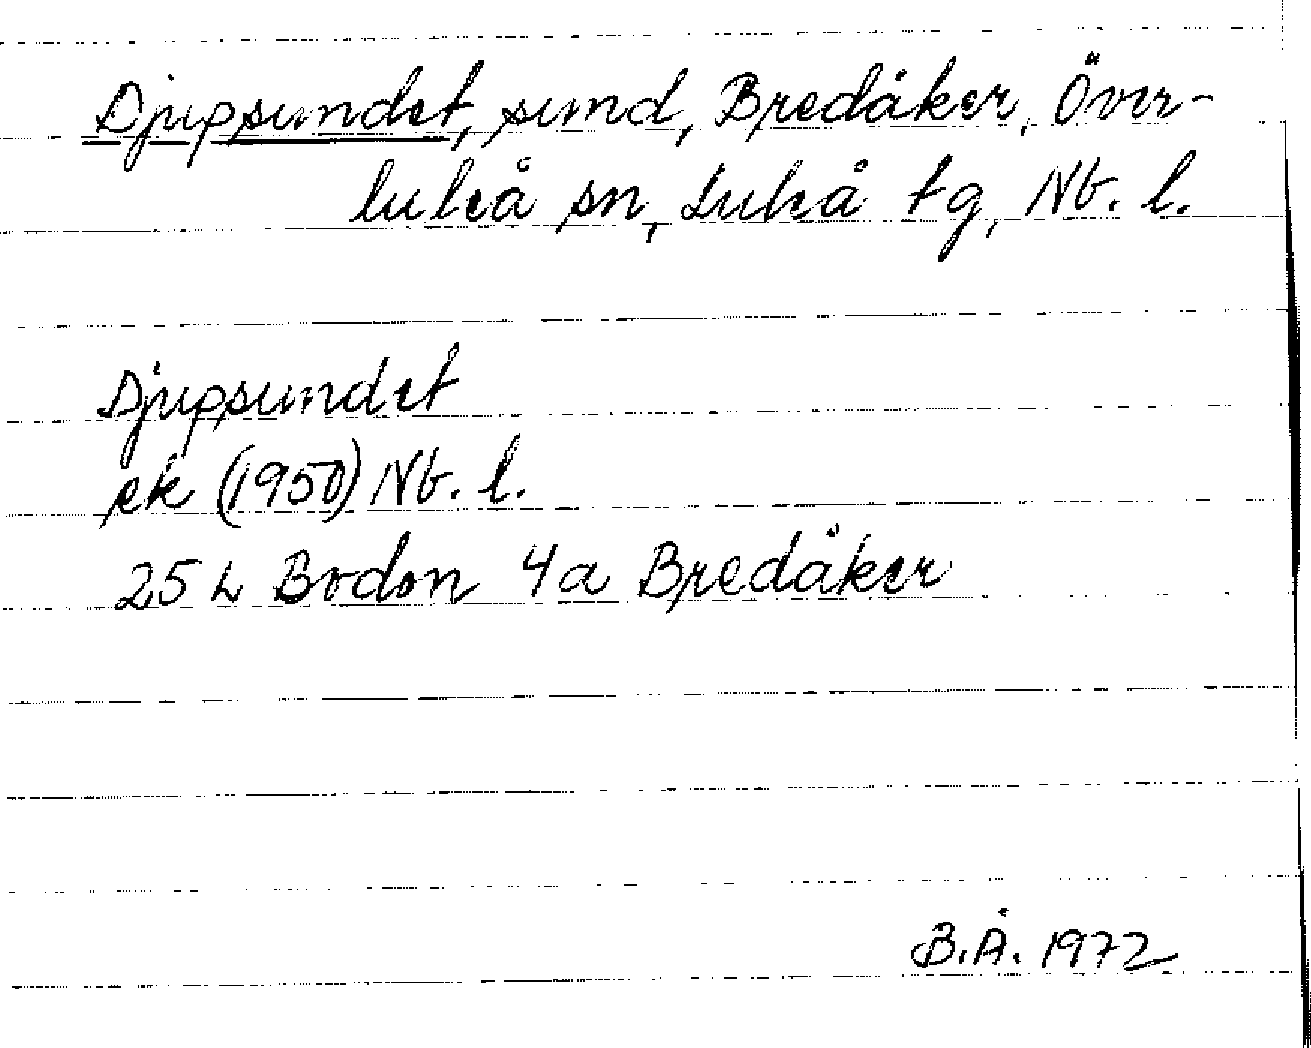 Djupsundet, sund, Bredåker, Över-
luleå sn, Luleå tg, Nb. l.
Djupsundet
ek (1950) Nb. l.
25 L Boden 4a Bredåker
B.Å. 1972